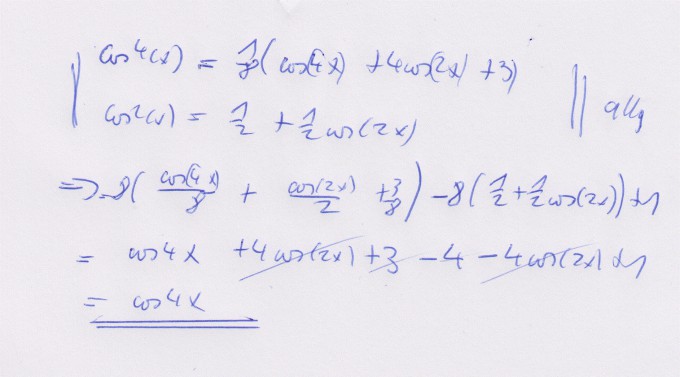 cos⁴(x) = 1/8( cos(4x) + 4cos(2x) + 3)
cos²(x) = 1/2 + 1/2 cos(2x) allg
=> 8( cos(4x)/8 + cos(2x)/2 + 3/8 ) - 8 ( 1/2 + 1/2 cos(2x)) + 1
= cos 4x + 4 cos(2x) + 3 - 4 - 4 cos(2x) + 1
= cos 4x